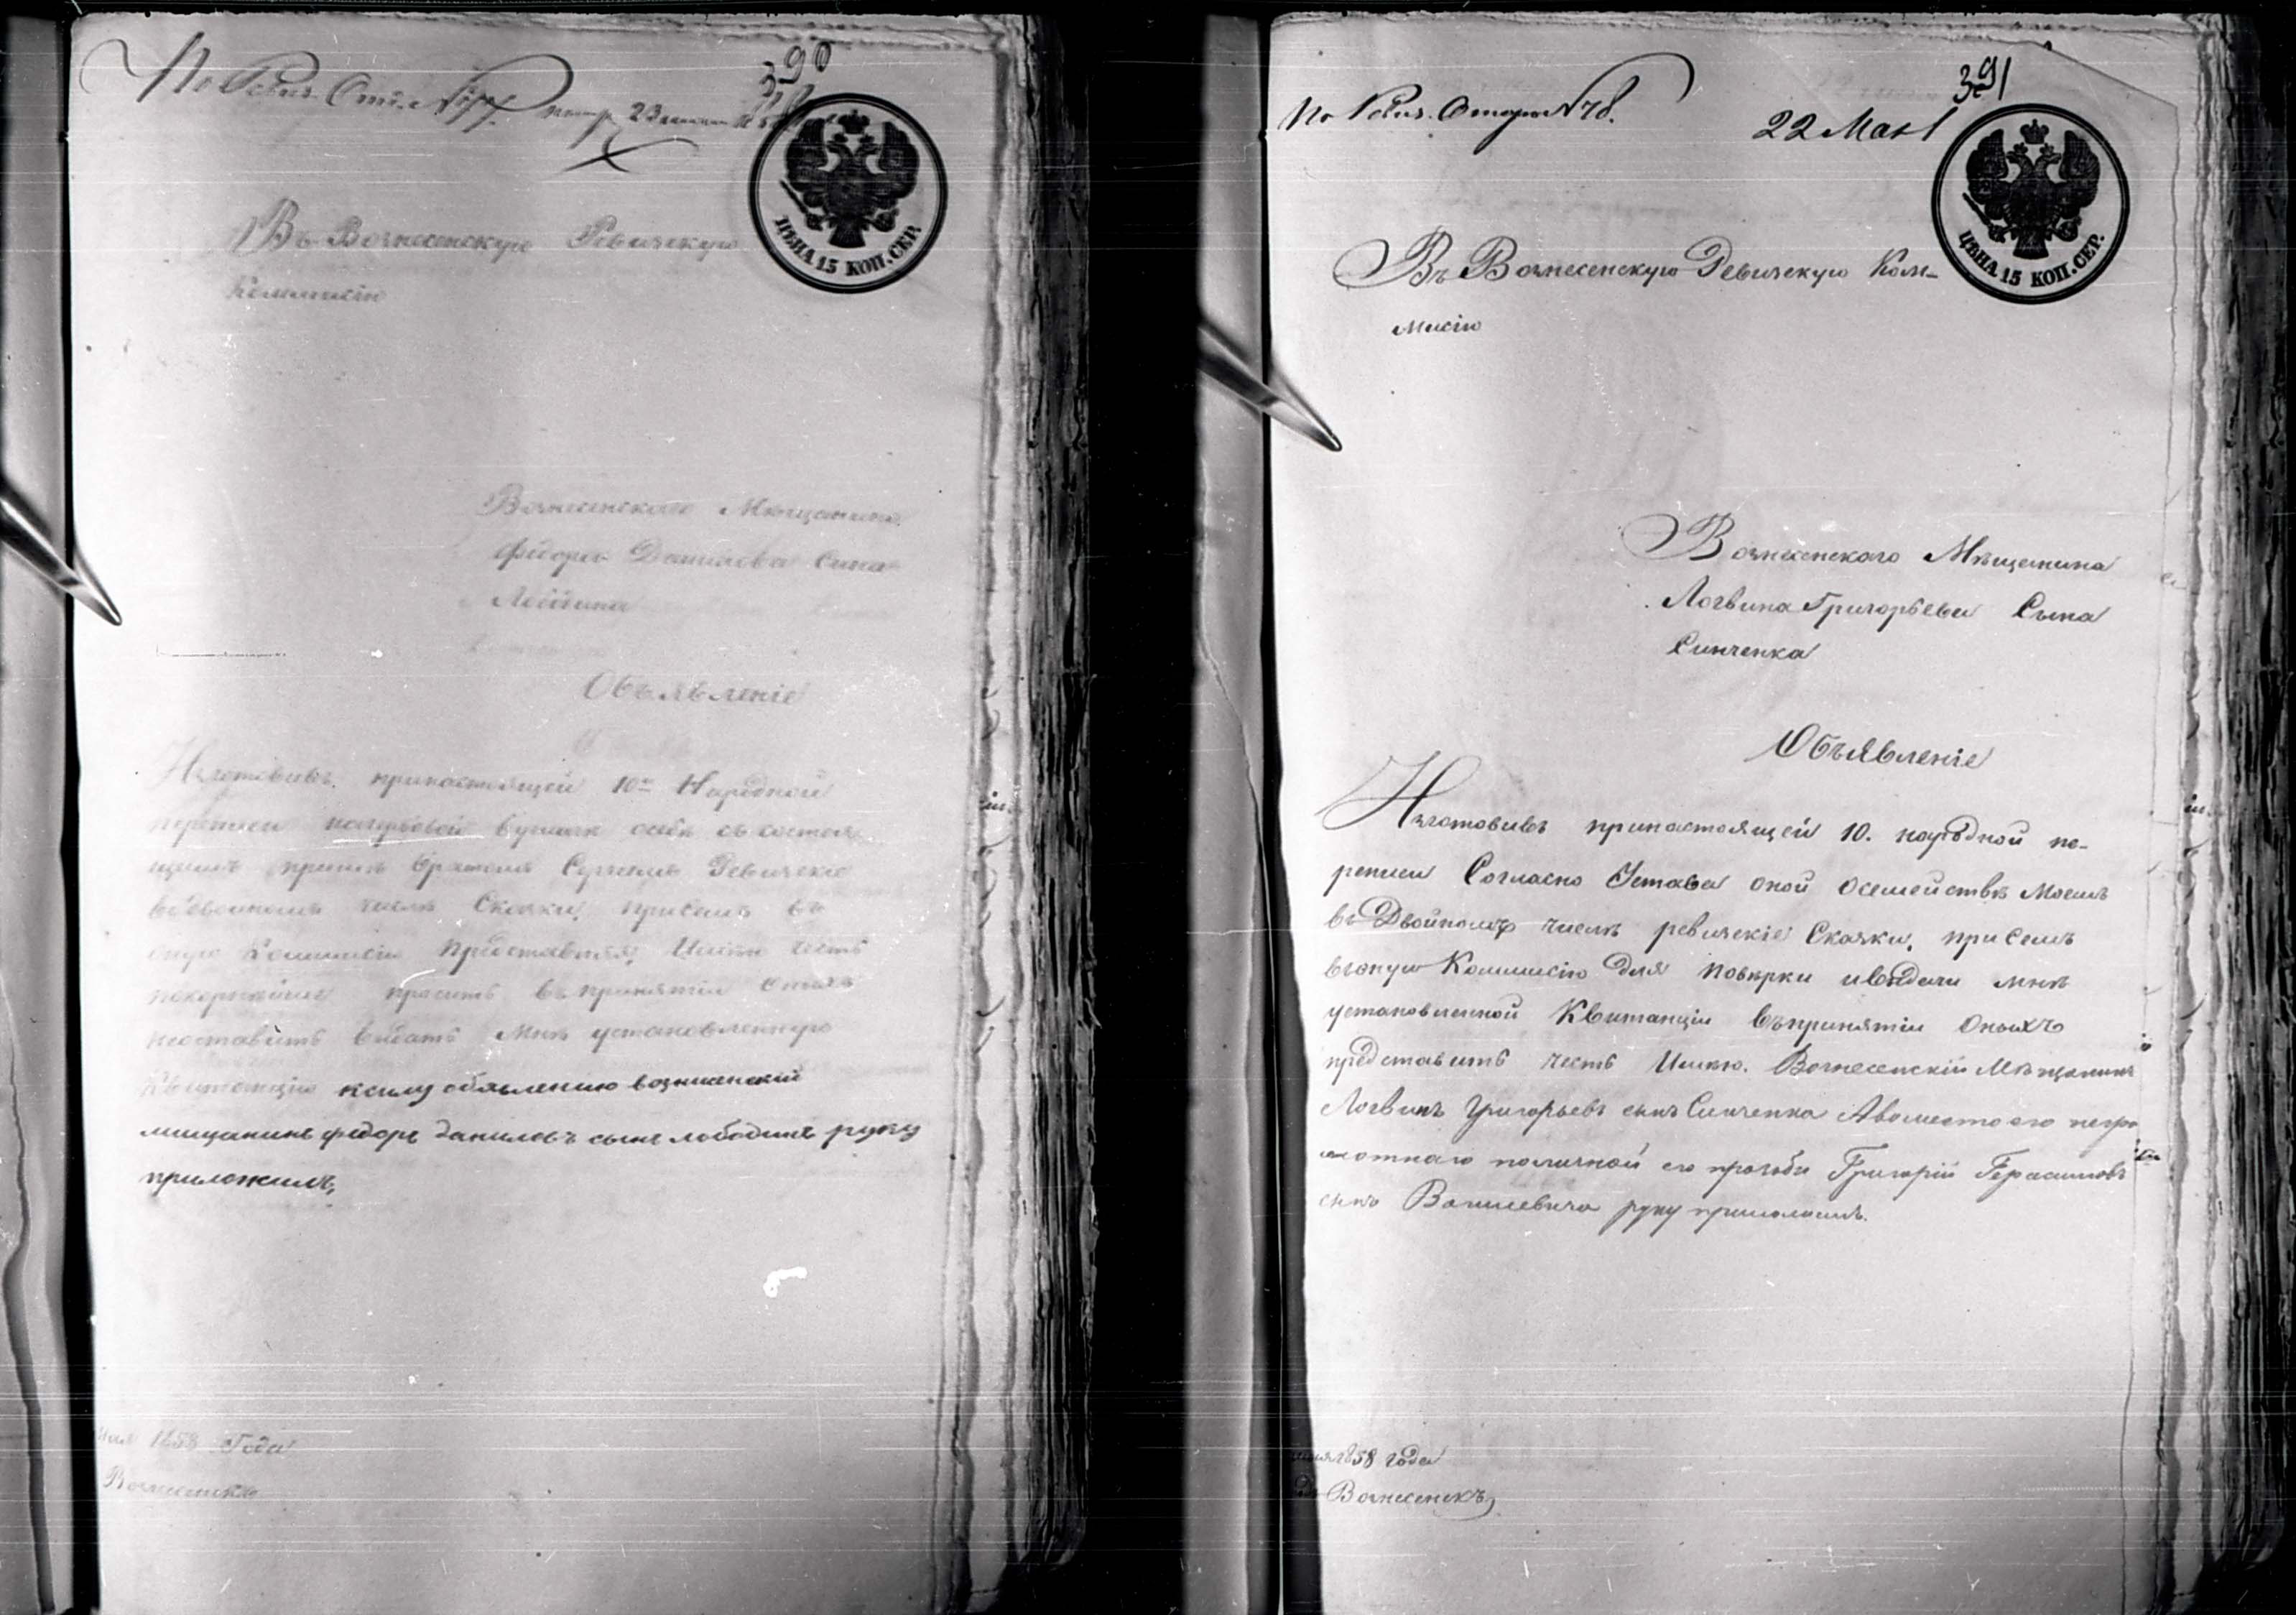 390
По Ревиз. Отд. №
23
ЦѢНА 15 КОП. СЕР.
Въ Вознесенскую Ревизскую
Коммисію
Вознесенского Мещанина
Федора Данилова Сына
Объявленіе
Изготовивъ принастоящей 10й Народной
переписи
братомъ Ревизскіе
вдвойномъ числѣ Сказки, присемъ въ
оную Коммисію представляя, Имѣю честь
покорнѣйше просить въ принятіи оныхъ
неоставить выдать Мнѣ установленную
Квитанцію ксему обявлению вознисенскій
мищанинъ федоръ даниловъ сынъ лободинъ руку
приложилъ,
Мая 1858 Года
Вознесенскъ
391
По Ревиз. Отд. №78.
22 Мая
ЦѢНА 15 КОП. СЕР.
Въ Вознесенскую Ревизскую Ком-
мисію
Вознесенского Мѣщанина
Логвина Григорьева Сына
Синченка
Объявленіе
Изготовивъ принастоящей 10. народной пе-
реписи Согласно Устава оной осемействѣ Моемъ
въ Двойномъ числѣ ревизскіе Сказки, присемъ
вөную Коммисію для повѣрки ивыдачи мнѣ
установленной Квитанціи въпринятіи Оныхъ
представить честь Имею. Вознесенскій Мѣщанинъ
Логвинъ Григорьевъ сынъ Синченка Авместо его негра
мотнаго поличной его прозьби Григорій Герасимовъ
сынъ руку приложилъ.
мая 1858 года
Вознесенскъ